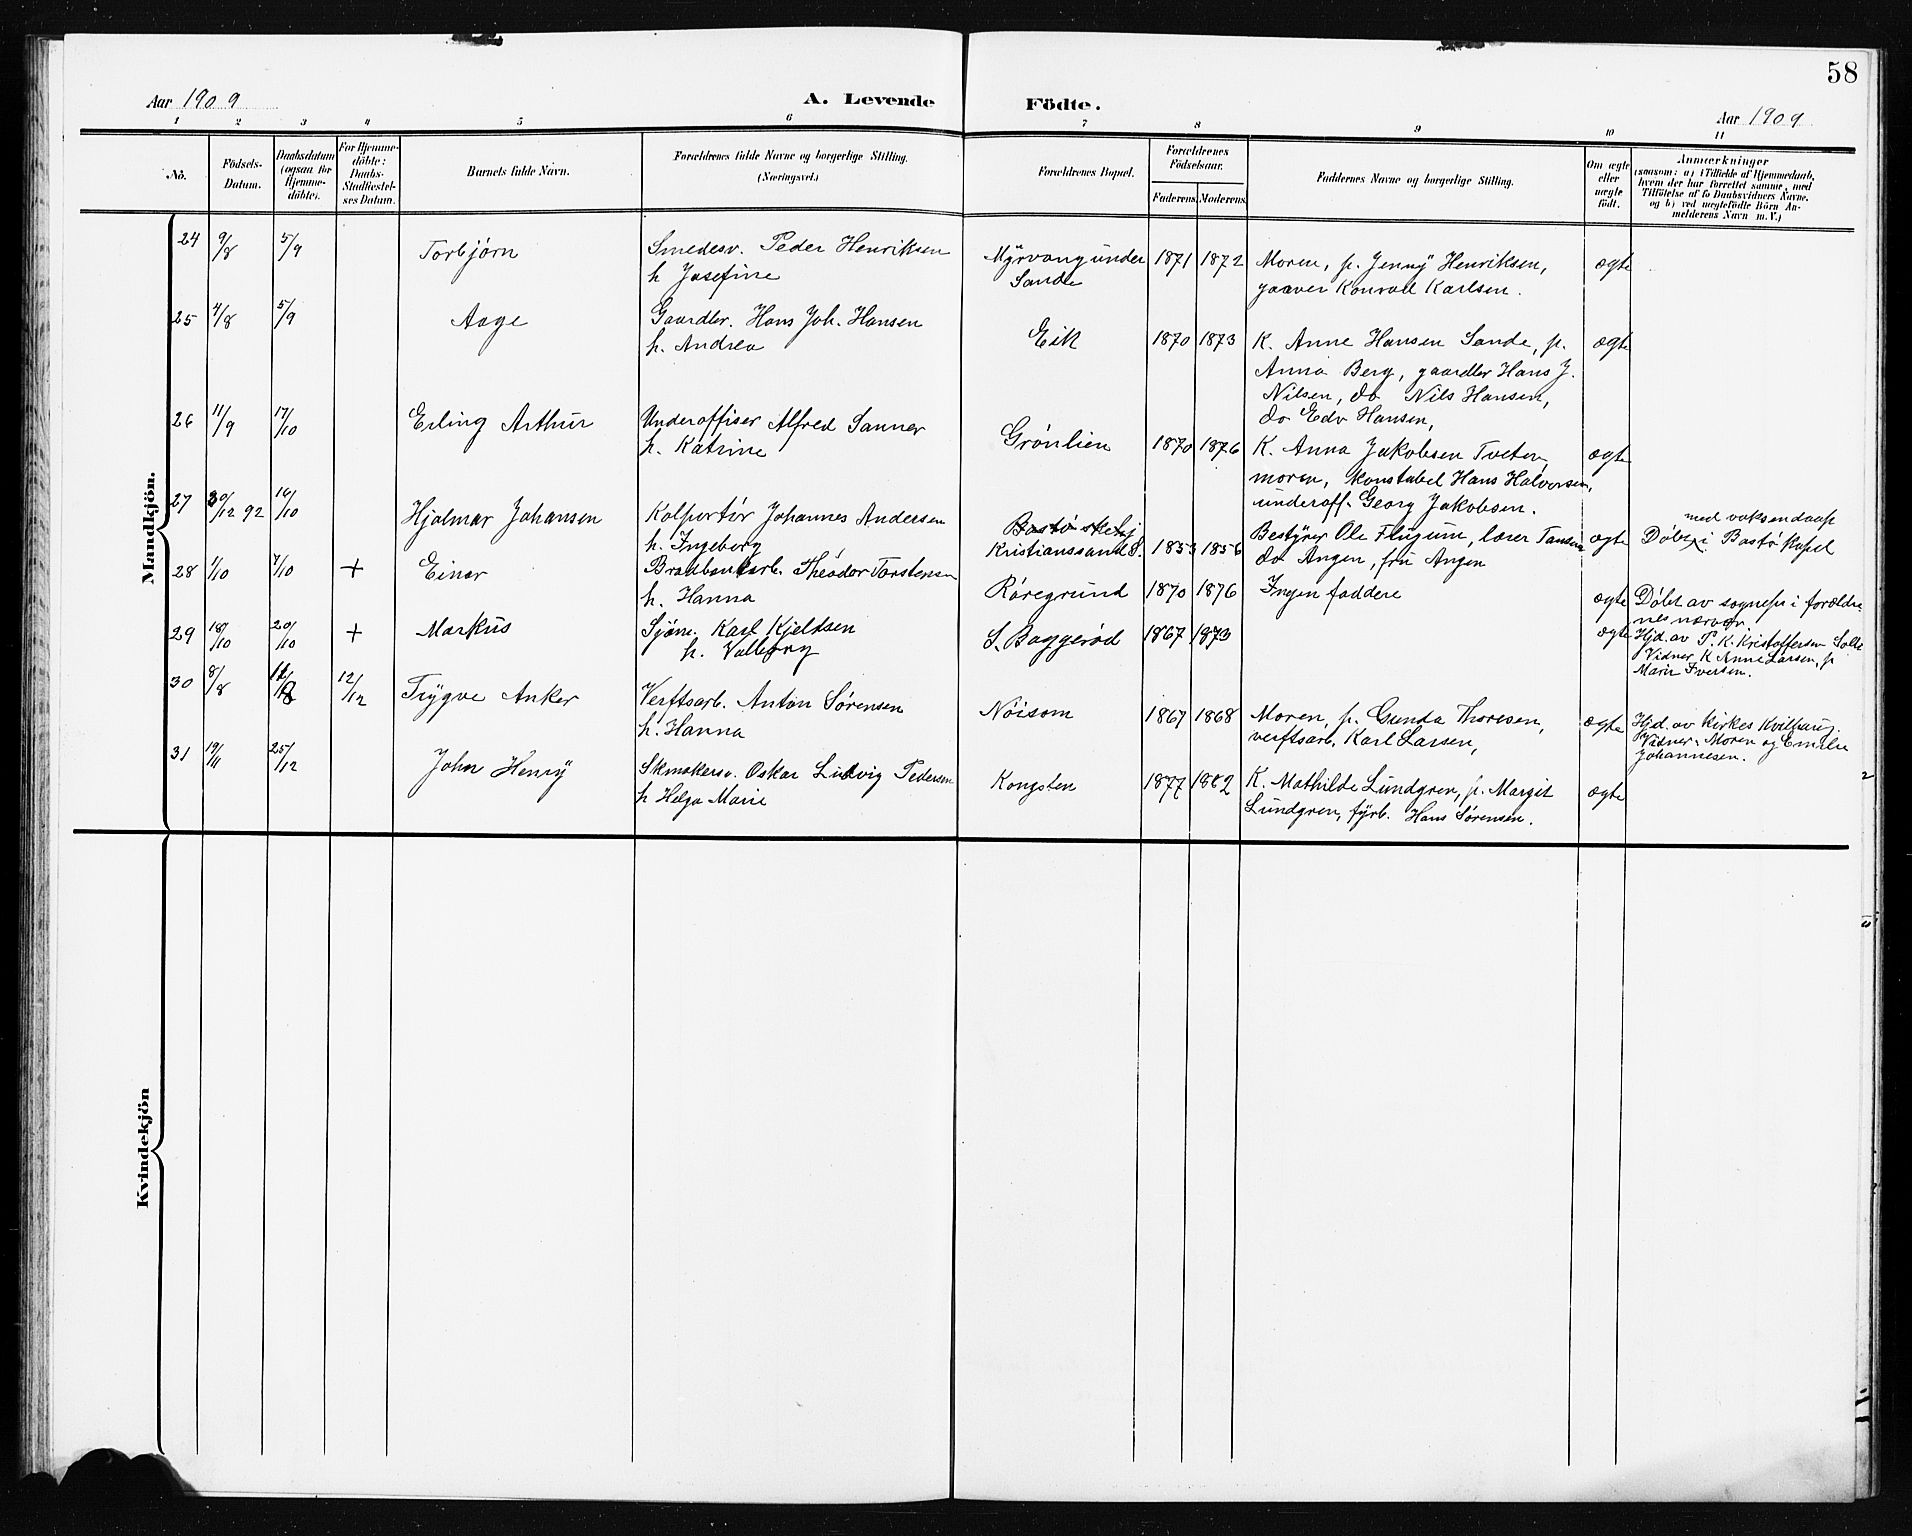 58
Aar 1909 A. Levende Födte. Aar 1909
1 2 3 4 5 6 7 8 9 10 11
No.
Födsels-
Datum.
Daabsdatum
(ogsaa for
Hjemme-
döbte).
For Hjemme-
döbte:
Daabs-
Stadfæstel-
ses Datum.
Barnets fulde Navn.
Forældrenes fulde Navne og borgerlige Stilling.
(Næringsvei.)
Forældrenes Bopæl.
Forældrenes
Födselsaar.
Faderens. Moderens.
Faddernes Navne og borgerlige Stilling.
Om ægte
eller
uægte
födt.
Anmærkninger
(saasom: a) i Tilfælde af Hjemmedaab,
hvem der har forrettet samme, med
Tilföielse af to Daabsvidners Navne.
og b) ved uægtefödte Börn An-
melderens Navn m. V.)
Mandkjön.
24 9/8 5/9 Torbjørn Smedesv. Peder Henriksen Myrvang under 1871 1872 Moren, p. Jenny Henriksen, ægte
h. Josefine Sande gaaver Konrad Karlsen.
25 4/8 5/9 Aage Gaardbr. Hans Joh. Hansen
h. Andrea Eik 1870 1873 K. Anne Hansen Sande, p. ægte
Anna Berg, gaardbr Hans J.
Nilsen, do Nils Hansen,
do Edv Hansen,
26 11/9 17/10 Erling Arthur Underoffiser Alfred Sanner
h. Katrine Grönlien 1870 1876 K. Anna Jakobsen Tveter, ægte
moren, konstabel Hans Halvorsen,
underoff. Georg Jakobsen.
27 30/12 92 16/10 Hjalmar Johansen Kolportör Johannes Andersen Bastö
h. Ingeborg Kristianssand S. 1853 1856 Bestyrer Ole Flugum, lærer Tansem ægte
do Angen, fru Angen
med voksendaap
Døbt i Bastö kapel
28 1/10 7/10 + Einar Brænderiarb. Theodor Torstensen
h. Hanna Röregrund 1870 1876 Ingen faddere ægte Døbt av sognepr i foreldre
nes nærvær.
29 18/10 20/10 + Markus Sjöm. Karl Kjeldsen
h. Valborg S. Baggeröd 1867 1873 ægte Hjd. av P. K. Kristoffersen
Vidner K Anne Larsen, p
Marie Iversen.
30 8/8 12/12 Trygve Anker Verftsarb. Anton Sörensen
h. Hanna Nöisom 1867 1868 Moren, p. Gunda Thoresen, ægte Hjd. av kirkes Kvilhaug.
verftsarb. Karl Larsen, Vidner. Moren og Emilie
Johannesen.
31 19/11 25/12 John Henry Skmakersv. Oskar Ludvig Pedersen
h Helga Marie Kongsten 1877 1882 K. Mathilde Lundgren, p. Margit ægte
Lundgren, fyrb. Hans Sörensen.
Kvindekjön